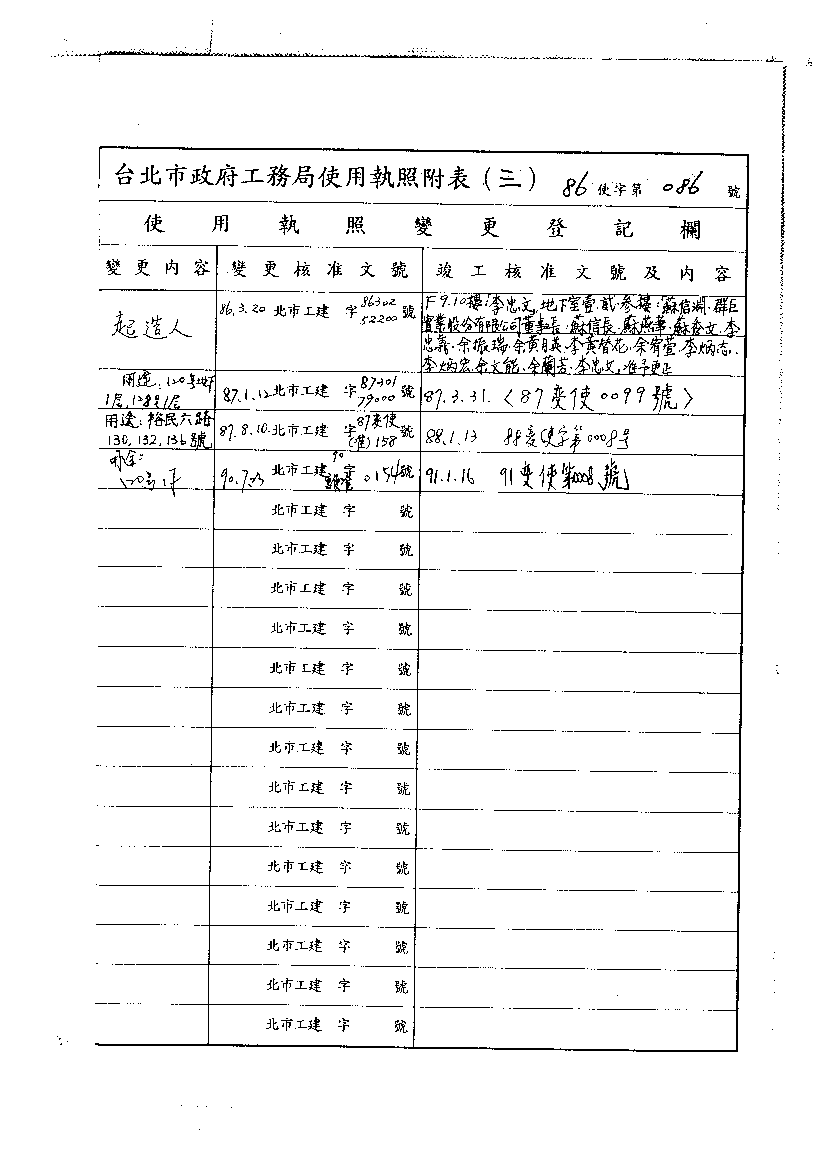 台北市政府工務局使用執照附表(三) 86使字第 086 號
使用執照變更登記欄
變更內容 變更核准文號 竣工核准文號及內容
起造人
86.3.20 北市工建 字 8630252200 號
下9.10樓:李忠文,地下室壹.貳.參樓:蘇信淵.群臣
實業股份有限公司董事長.蘇信長.蘇燕華.蘇森文.李
忠義.余振瑞.余黃月英.李黃督花.余宥萱.李炳志.
李炳宏.余文能.余蘭吉.李忠文.准予更正
用途:120號地下
1層,128號1層
87.1.12 北市工建 字 8730179000 號
87.3.31.〈87變使0099號〉
用途:裕民六路
130,132,136號
87.8.10. 北市工建 字 87變使(准)158 號
88.1.13 88變使字第0008号
120号1F
90.7.23 北市工建 字 90 0154 號
91.1.16 91變使第0008號
北市工建 字 號
北市工建 字 號
北市工建 字 號
北市工建 字 號
北市工建 字 號
北市工建 字 號
北市工建 字 號
北市工建 字 號
北市工建 字 號
北市工建 字 號
北市工建 字 號
北市工建 字 號
北市工建 字 號
北市工建 字 號